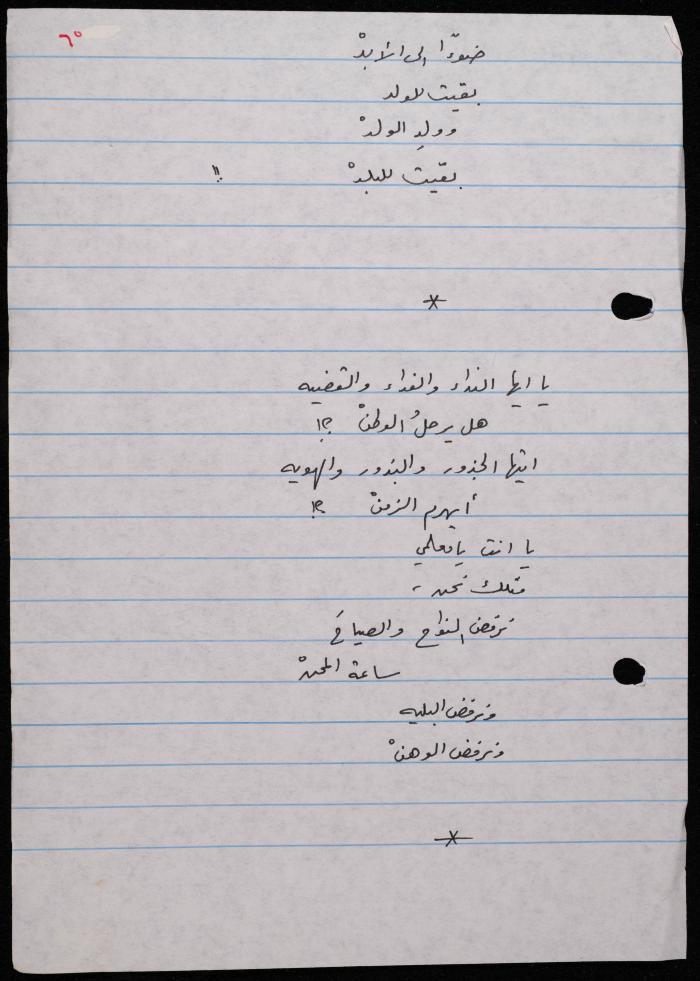 ٦٥
ضوءًا إلى الأبدْ
بقيت للولد
وولدِ الولدْ
بقيت للبلدْ !!
*
يا ايها النداء والفداء والقضيه
هل يرحلُ الوطنْ ؟!
ايتها الجذور والبذور والهويه
أيهرم الزمنْ ؟!
يا انت يا معلمي
مثلك نحن ،
نرفض النواح والصياحَ
ساعة المحنْ
ونرفض البليه
ونرفض الوهنْ
*